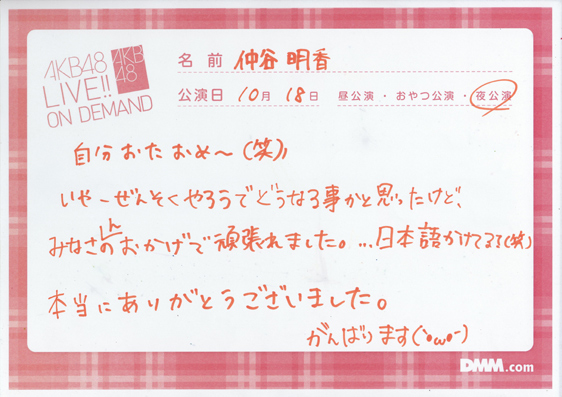 AKB48
LIVE!!
ON DEMAND
AKB
48
名前 仲谷 明香
公演日 10月 18日 昼公演・おやつ公演・夜公演
自分おたおめ〜(笑)
いやーぜんそくやろうでどうなる事かと思ったけど、
みなさんのおかげで頑張れました。…日本語かけてるろ(笑)
本当にありがとうございました。
がんばります(`・ω・´)
DMM.com